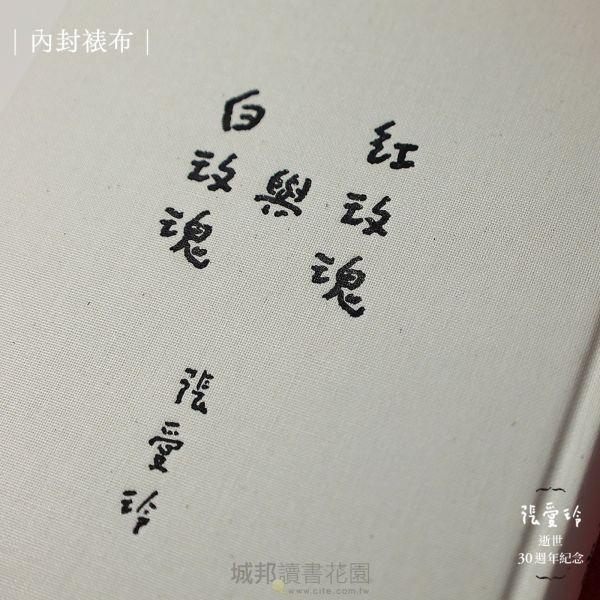 ｜內封裱布｜
紅玫瑰
與
白玫瑰
張愛玲
張愛玲
逝世
30週年紀念
城邦讀書花園
www.cite.com.tw